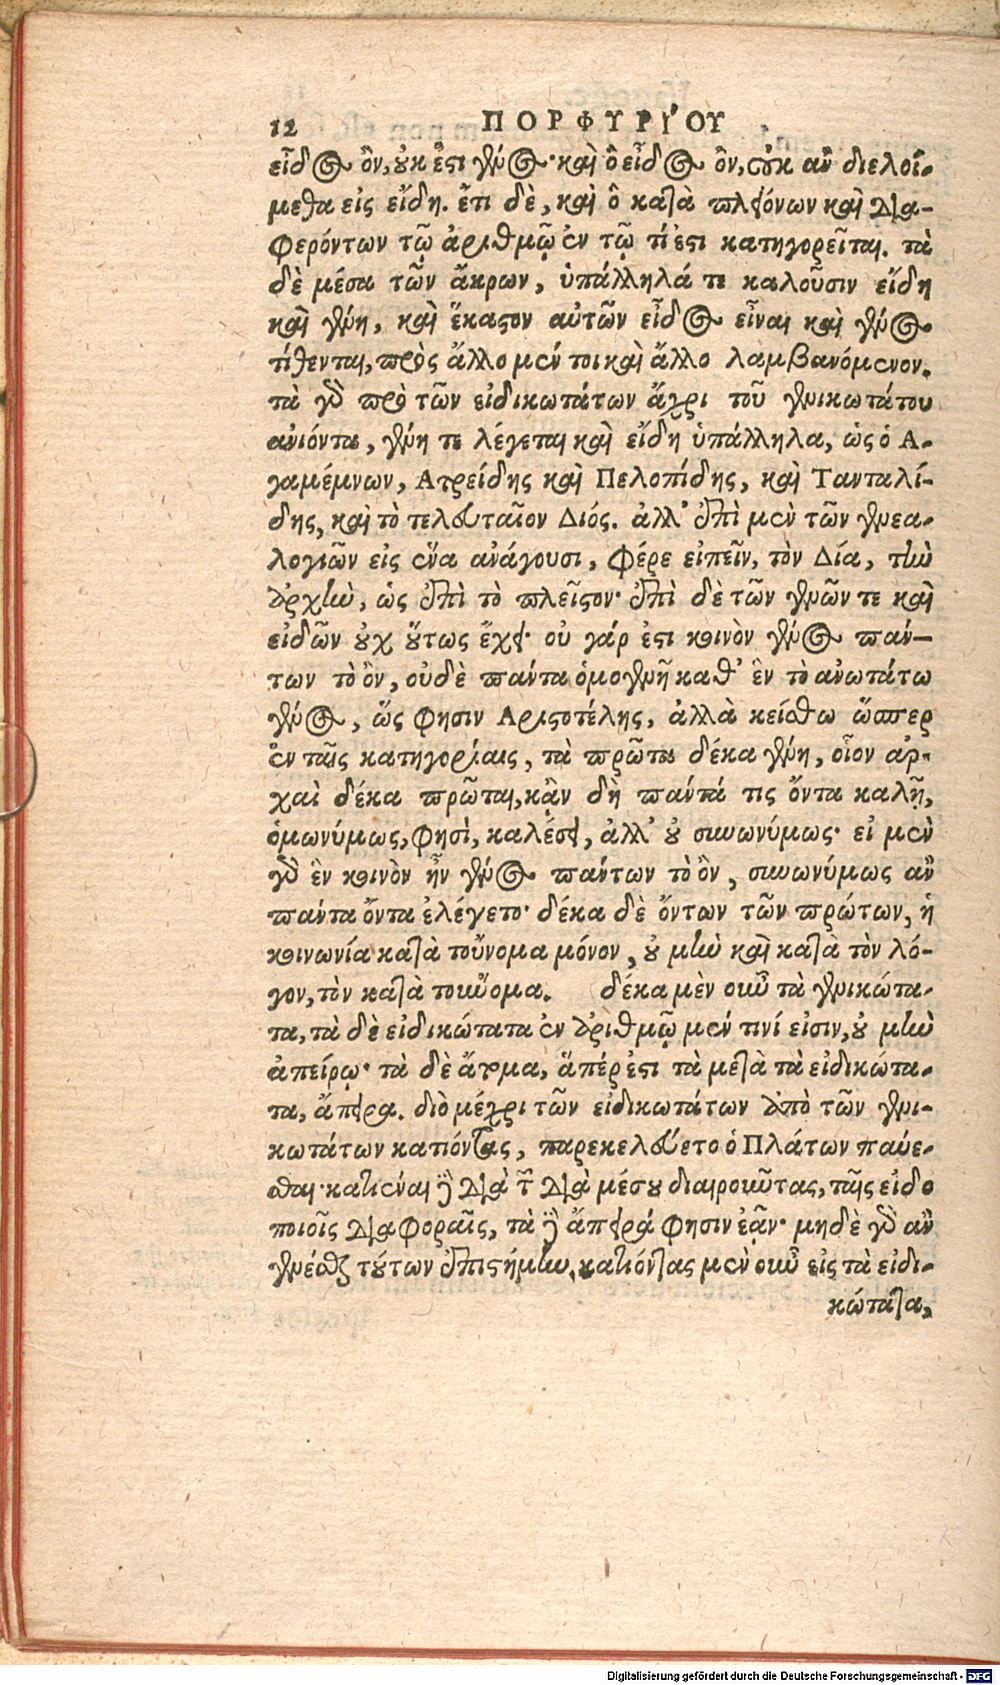 12 ΠΟΡΦΥΡΙΟΥ
εἶδος ὂν, οὐκ ἔστι γένος· καὶ ὃ εἶδος ὂν, οὐκ ἂν διελοί-
μεθα εἰς εἴδη. ἔτι δὲ, καὶ ὃ κατὰ πλειόνων καὶ δια-
φερόντων τῷ ἀριθμῷ ἐν τῷ τί ἐστι κατηγορεῖται. τὰ
δὲ μέσα τῶν ἄκρων, ὑπάλληλά τε καλοῦσιν εἴδη
καὶ γένη, καὶ ἕκαστον αὐτῶν εἶδος εἶναι καὶ γένος
τίθενται, πρὸς ἄλλο μέν τοι καὶ ἄλλο λαμβανόμενον.
τὰ γὰρ πρὸ τῶν εἰδικωτάτων ἄχρι τοῦ γενικωτάτου
ἀνιόντα, γένη τε λέγεται καὶ εἴδη ὑπάλληλα, ὡς ὁ Α-
γαμέμνων, Ατρείδης καὶ Πελοπίδης, καὶ Τανταλί-
δης, καὶ τὸ τελευταῖον Διός. ἀλλ' ἐπὶ μὲν τῶν γενεα-
λογιῶν εἰς ἕνα ἀνάγουσι, φέρε εἰπεῖν, τὸν Δία, τὴν
ἀρχὴν, ὡς ἐπὶ τὸ πλεῖστον· ἐπὶ δὲ τῶν γενῶν τε καὶ
εἰδῶν οὐχ οὕτως ἔχει· οὐ γάρ ἐστι κοινὸν γένος πάν-
των τὸ ὂν, οὐδὲ πάντα ὁμογενῆ καθ' ἓν τὸ ἀνωτάτω
γένος, ὥς φησιν Αριστοτέλης, ἀλλὰ κείσθω ὥσπερ
ἐν ταῖς κατηγορίαις, τὰ πρῶτα δέκα γένη, οἷον ἀρ-
χαὶ δέκα πρῶται, κἂν δὴ πάντά τις ὄντα καλῇ,
ὁμωνύμως, φησὶ, καλέσει, ἀλλ' οὐ συνωνύμως· εἰ μὲν
γὰρ ἓν κοινὸν ἦν γένος πάντων τὸ ὂν, συνωνύμως ἂν
πάντα ὄντα ἐλέγετο· δέκα δὲ ὄντων τῶν πρώτων, ἡ
κοινωνία κατὰ τοὔνομα μόνον, οὐ μὴν καὶ κατὰ τὸν λό-
γον, τὸν κατὰ τοὔνομα. δέκα μὲν οὖν τὰ γενικώτα-
τα, τὰ δὲ εἰδικώτατα ἐν ἀριθμῷ μέν τινί εἰσιν, οὐ μὴν
ἀπείρῳ· τὰ δὲ ἄτομα, ἅπέρ ἐστι τὰ μετὰ τὰ εἰδικώτα-
τα, ἄπειρα. διὸ μέχρι τῶν εἰδικωτάτων ἀπὸ τῶν γενι-
κωτάτων κατιόντας, παρεκελεύετο ὁ Πλάτων παύε-
σθαι· κατιέναι δὲ διὰ τῶν διὰ μέσου διαιροῦντας, ταῖς εἰδο
ποιοῖς διαφοραῖς, τὰ δὲ ἄπειρά φησιν ἐᾶν· μηδὲ γὰρ ἂν
γενέσθαι τούτων ἐπιστήμην. κατιόντας μὲν οὖν εἰς τὰ εἰδι-
κώτατα,
Digitalisierung gefördert durch die Deutsche Forschungsgemeinschaft - DFG